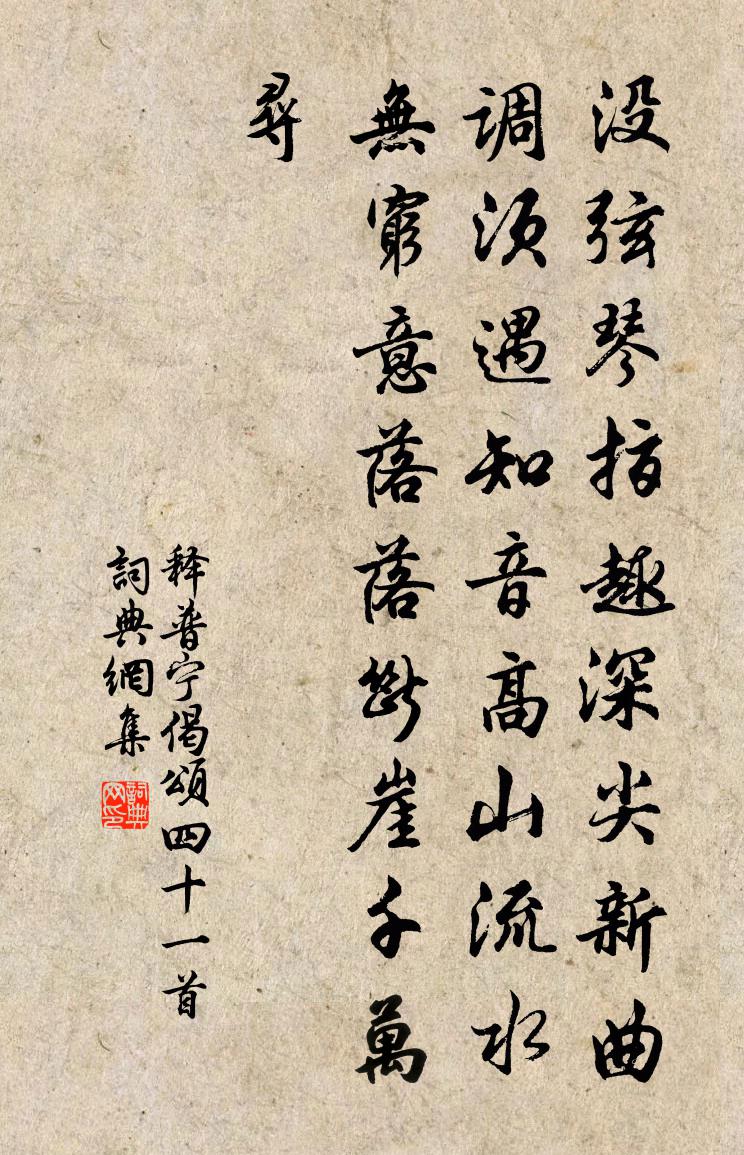 没弦琴指趣深尖新曲
调须遇知音高山流水
無窮意落落斷崖千萬
尋
释普宁偈頌四十一首
詞典網集
詞典网印